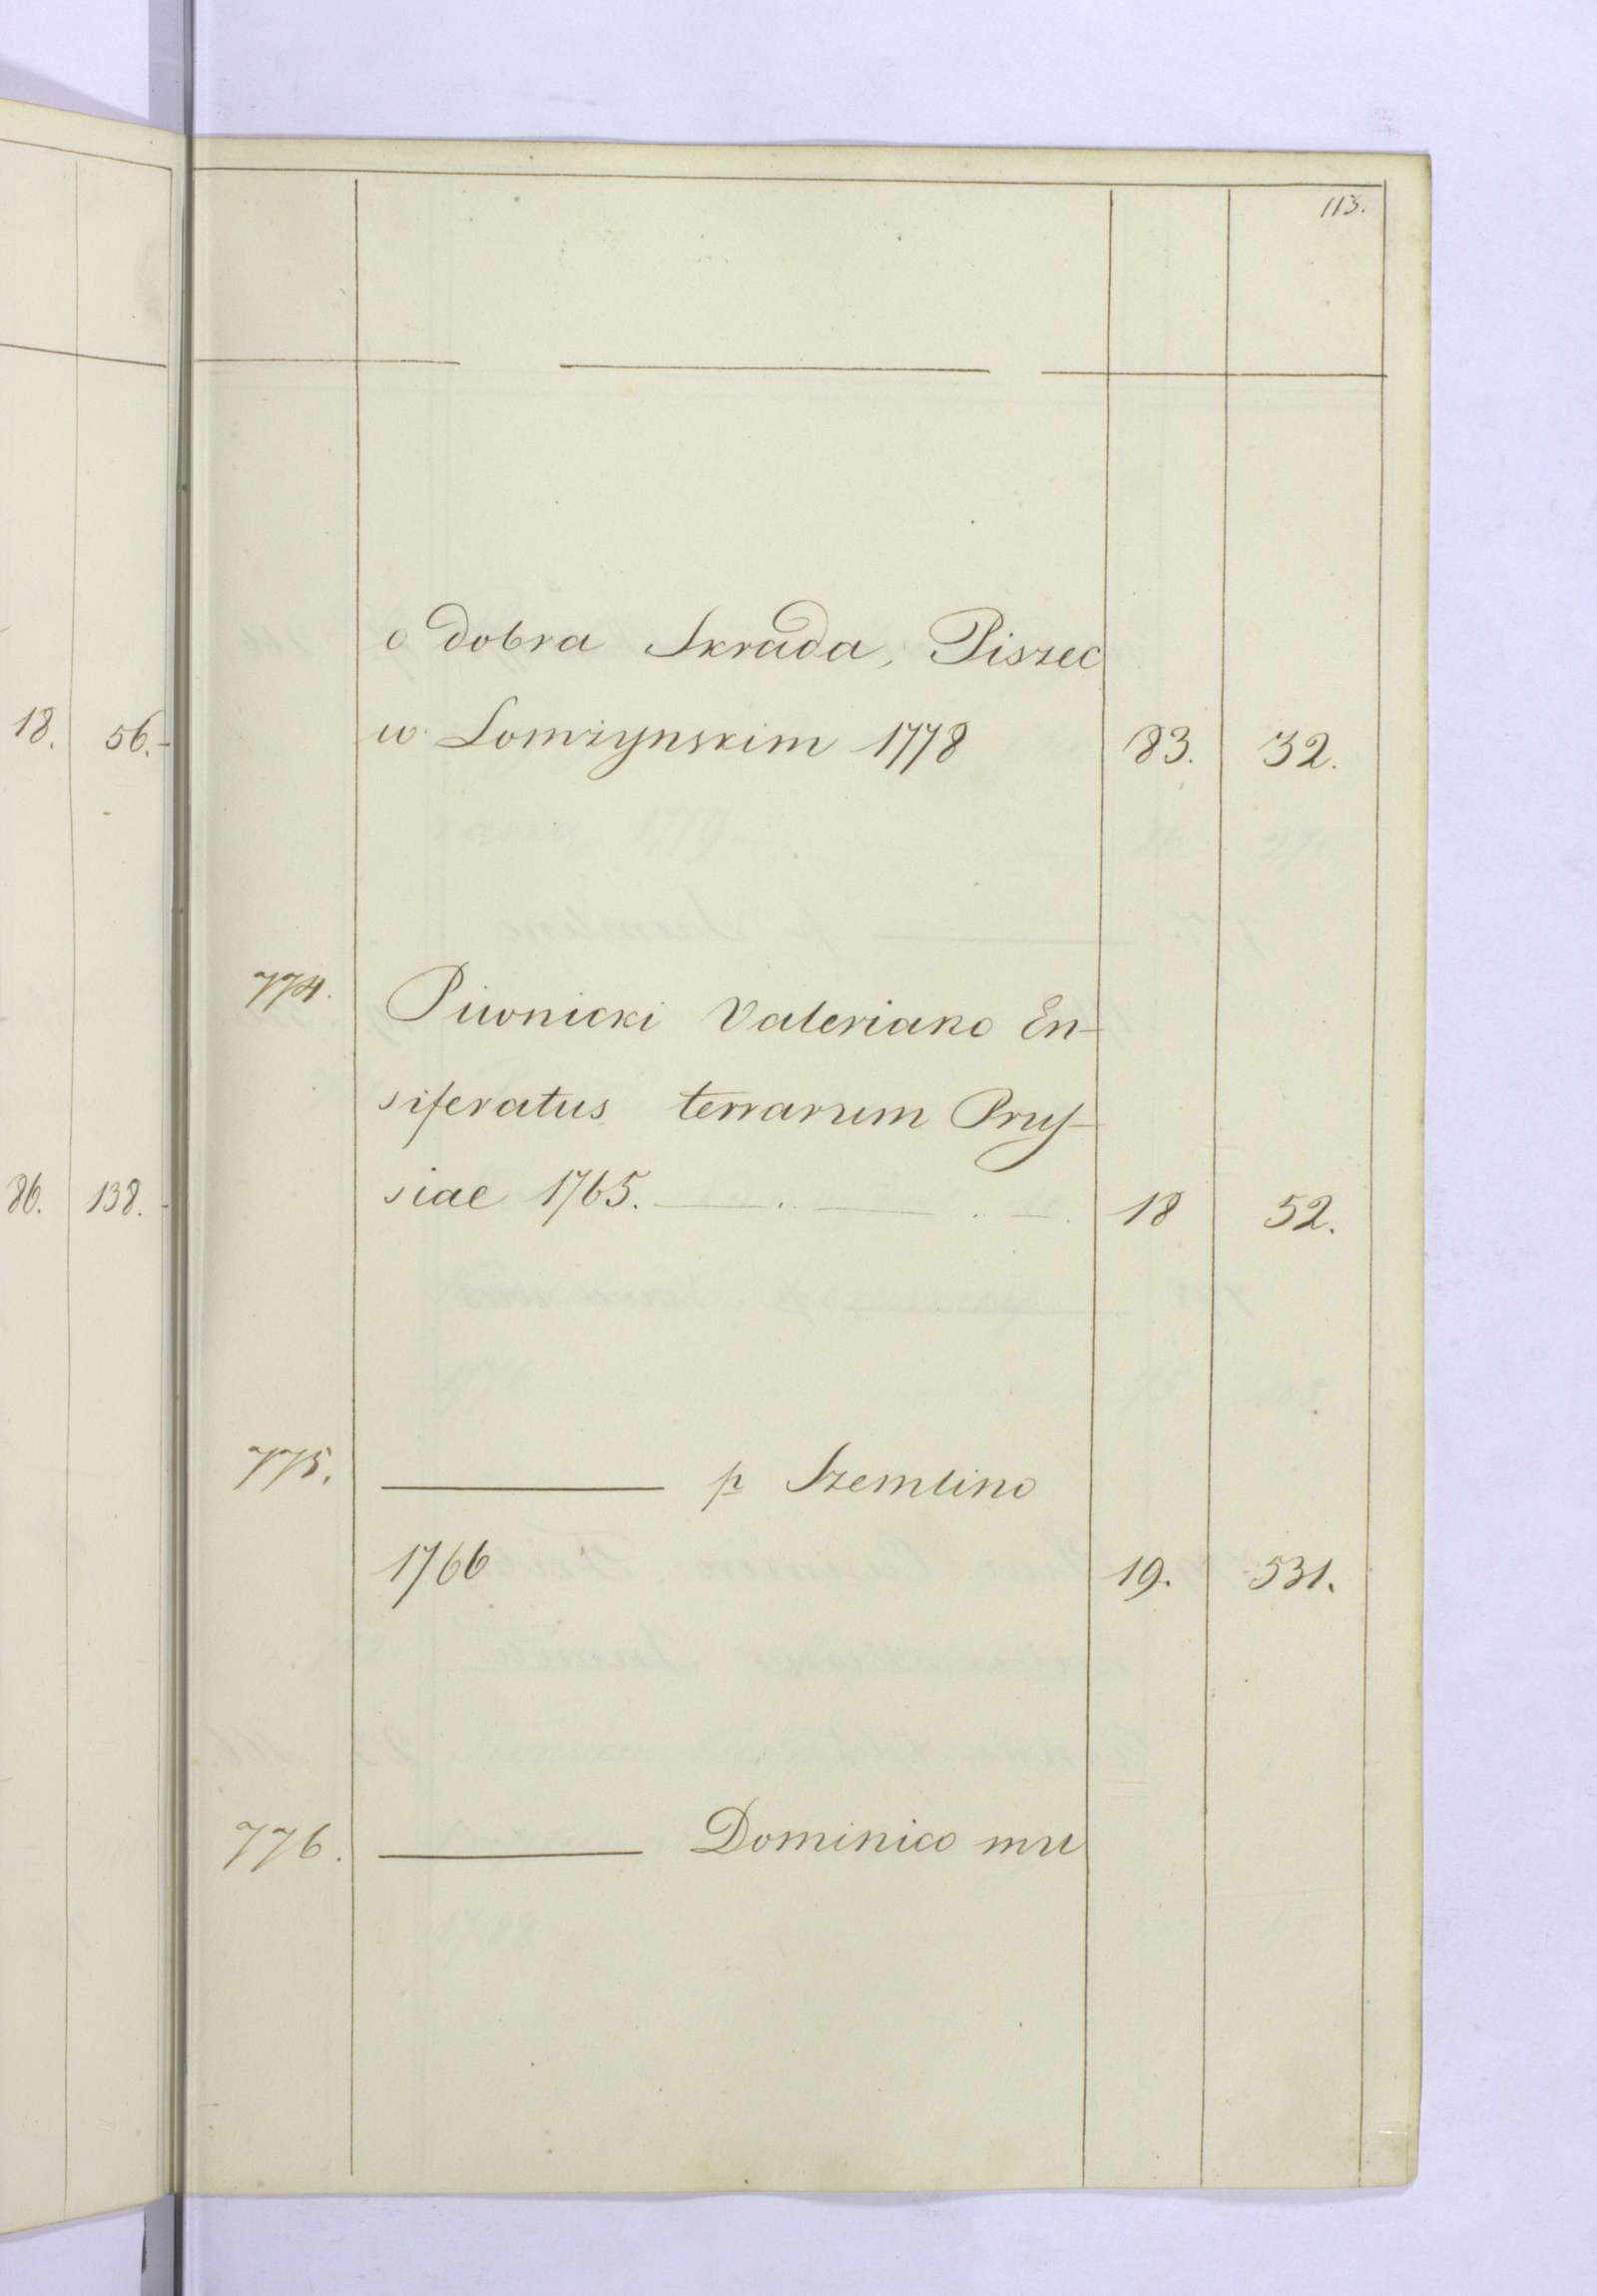 113.
o dobra Skrada, Piszec
18. 56. w Lomżynskim 1778 83. 32.
774. Piwnicki Valeriano En-
siferatus terrarum Prus-
86. 138. siae 1765. 18 52.
775. p Szemlino
1766 19. 531.
776. Dominico mru